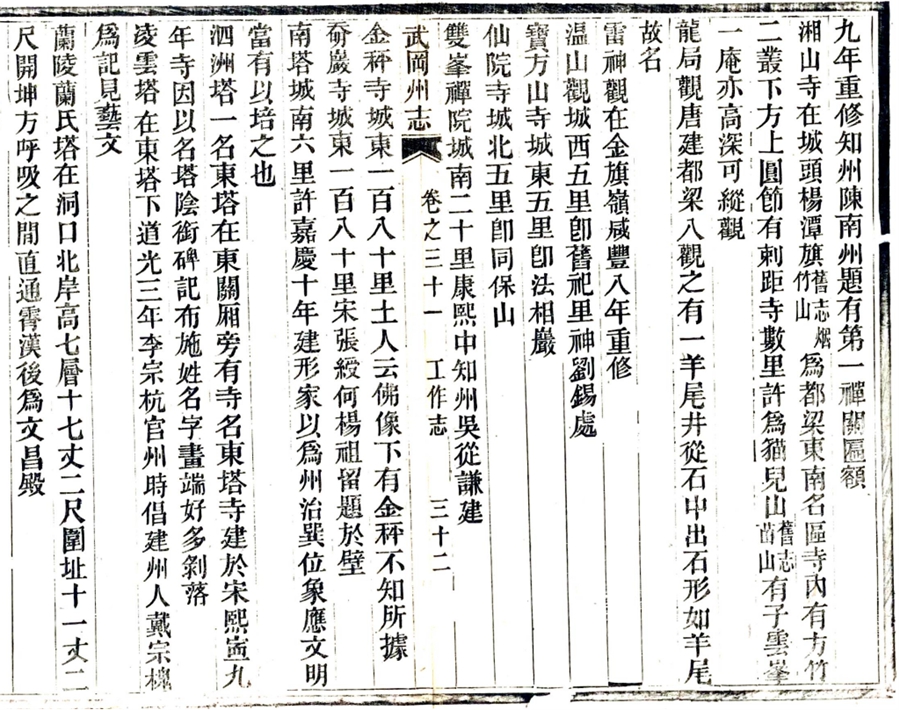 九年重修知州陳南州題有第一禪關匾額
湘山寺在城頭楊潭旗舊志烟竹山爲都梁東南名區寺內有方竹
二叢下方上圓節有刺距寺數里許爲貓兒山舊志苗山有子雲峯
一庵亦高深可縱觀
龍局觀唐建都梁八觀之有一羊尾井從石中出石形如羊尾
故名
雷神觀在金旗嶺咸豐八年重修
温山觀城西五里卽舊祀里神劉錫處
寶方山寺城東五里卽法相巖
仙院寺城北五里卽同保山
雙峯禪院城南二十里康熙中知州吳從謙建
武岡州志 卷之三十一 工作志 三十二
金秤寺城東一百八十里土人云佛像下有金秤不知所據
斎巖寺城東一百八十里宋張綬何楊祖留題於壁
南塔城南六里許嘉慶十年建形家以爲州治巽位象應文明
當有以培之也
泗洲塔一名東塔在東關厢旁有寺名東塔寺建於宋熙寧九
年寺因以名塔陰銜碑記布施姓名字畫端好多剝落
凌雲塔在東塔下道光三年李宗杭官州時倡建州人戴宗槐
爲記見藝文
蘭陵蘭氏塔在洞口北岸高七層十七丈二尺圍址十一丈二
尺開坤方呼吸之間直通霄漢後爲文昌殿